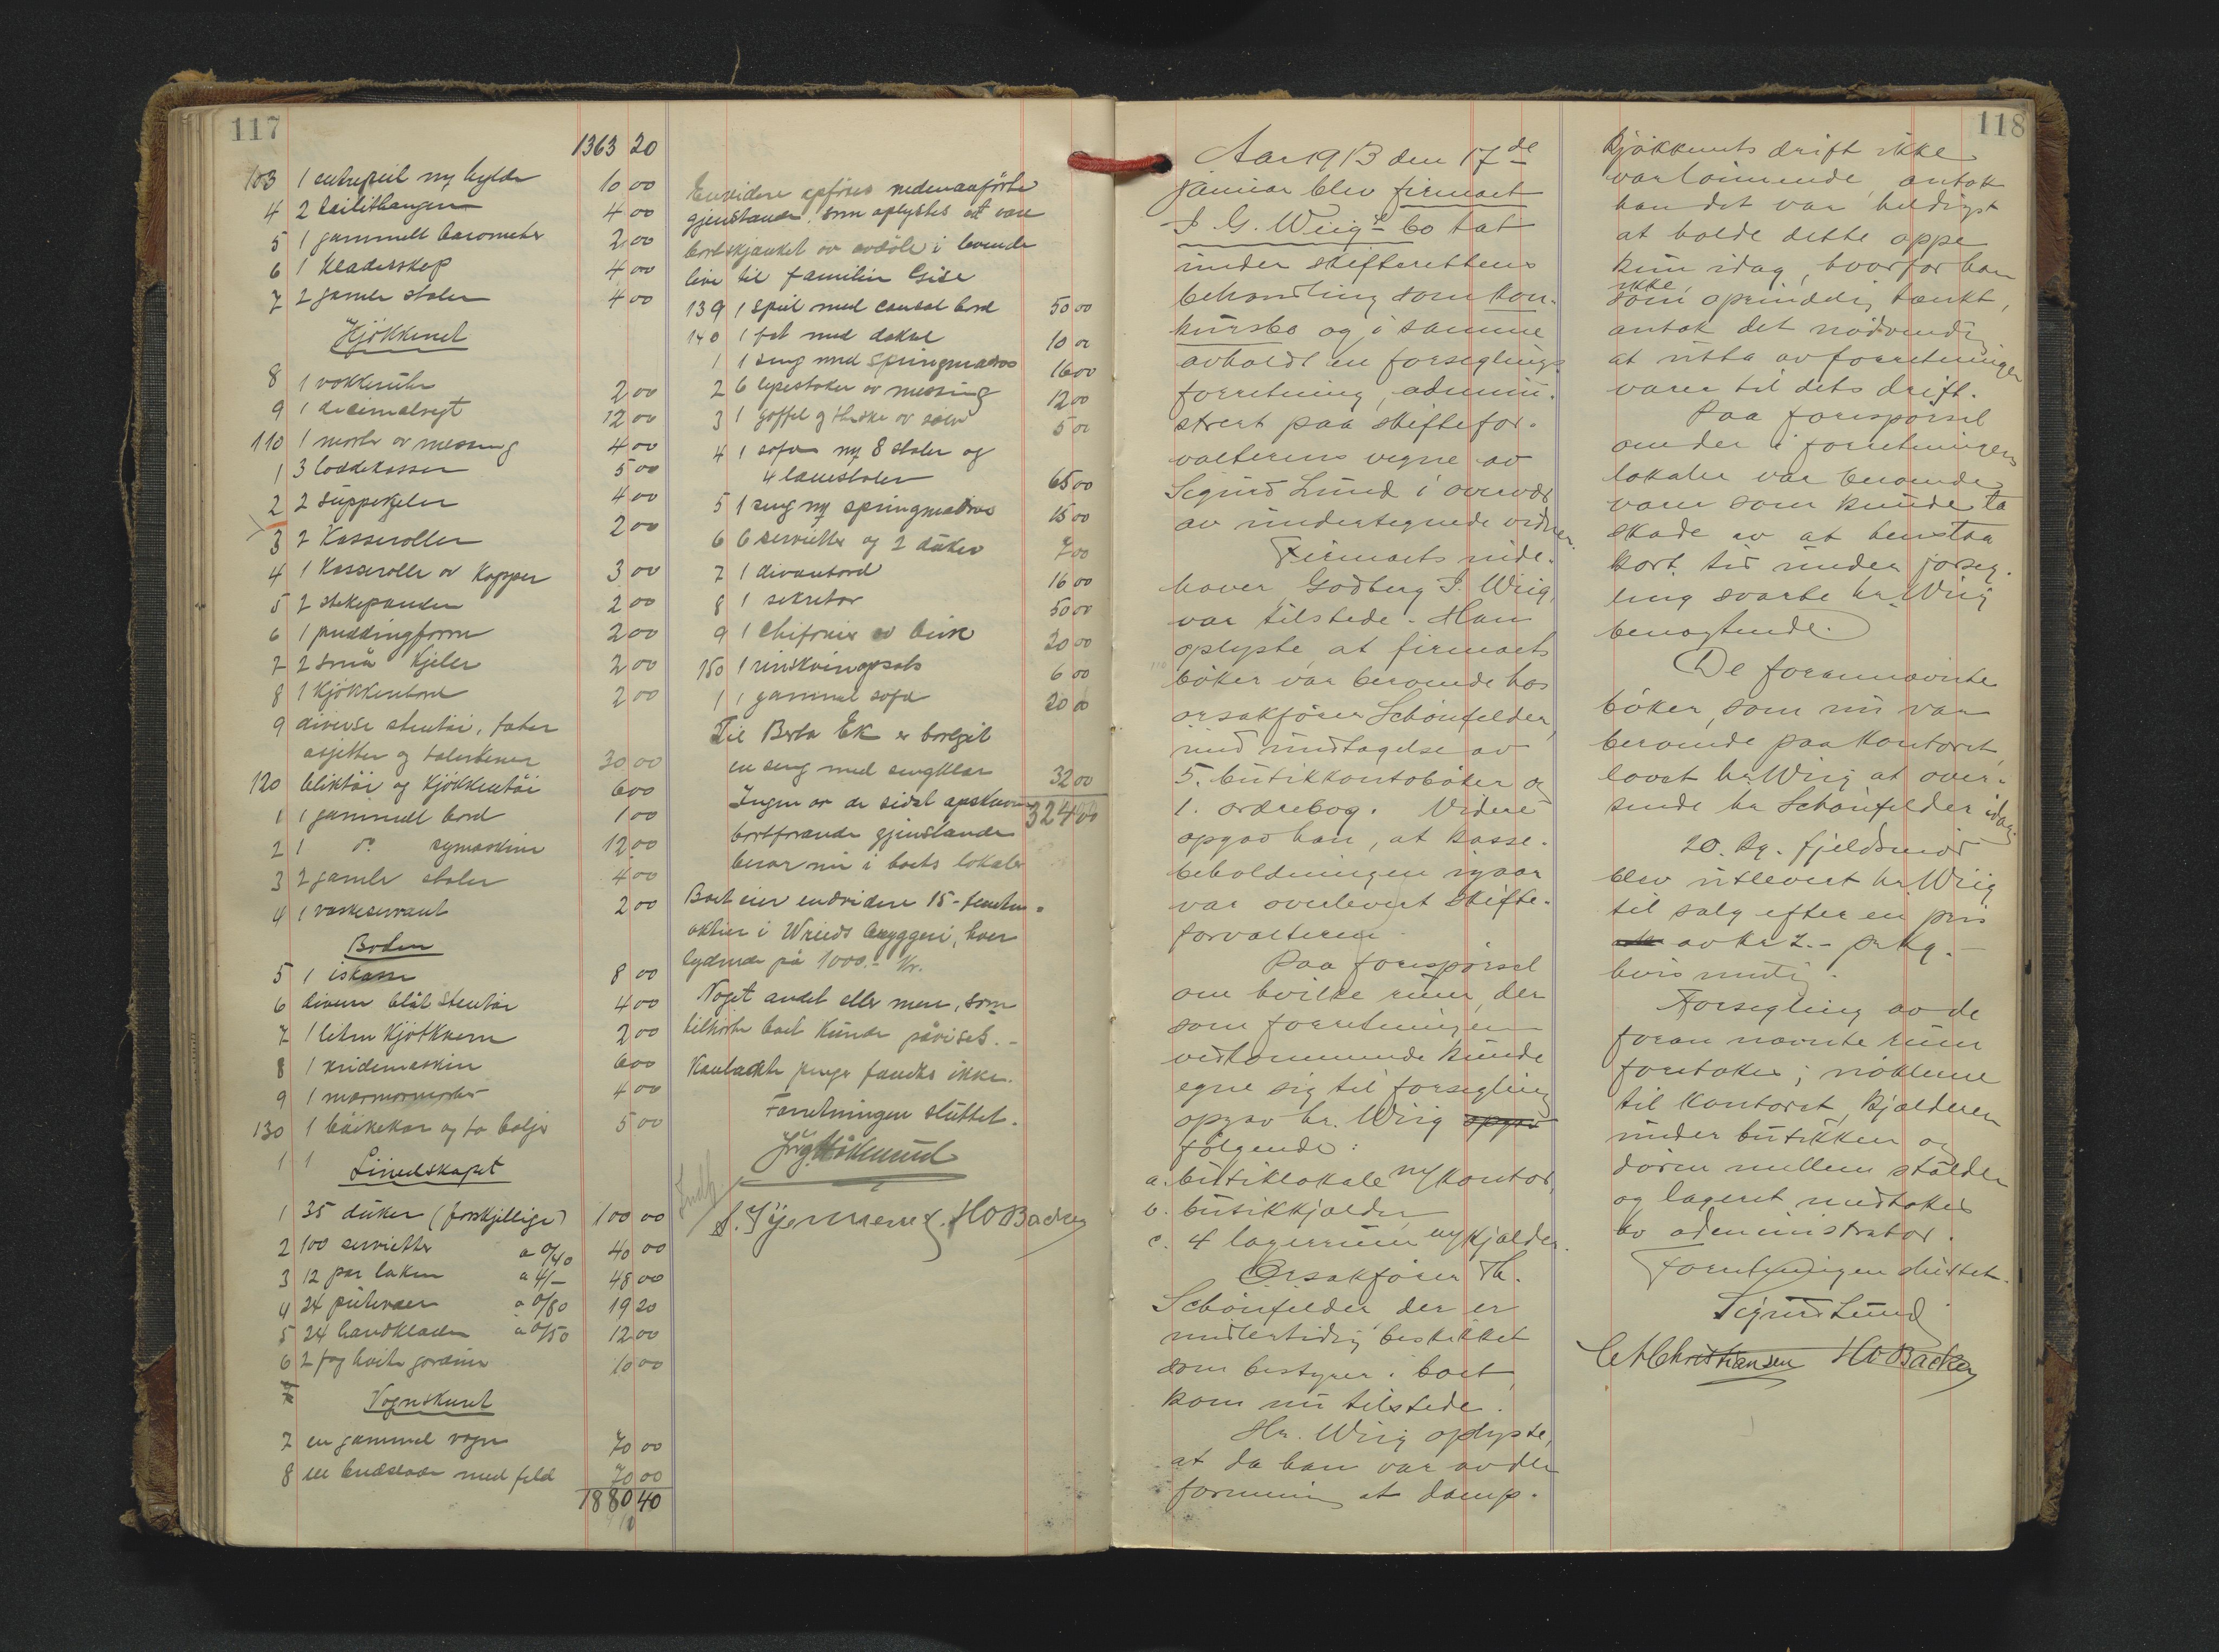 117
1363 20
103 1 entrepeil m/ hylde 10 00
4 2 4 00
5 1 gammelt barometer 2 00
6 1 klædesskap 4 00
7 2 gamle stoler 4 00
Kjøkkenet
8 1 vekkeruhr 2 00
9 1 decimalvegt 12 00
110 1 morter av messing 4 00
1 3 loddekasser 5 00
2 2 suppekjeler 4 00
3 2 Kasseroller 2 00
4 1 Kasserolle av Kopper 3 00
5 2 stekepander 2 00
6 1 puddingform 2 00
7 2 små kjeler 2 00
8 1 Kjøkkenbord 2 00
9 diverse stentøi, fater
asjetter og talerkener 30 00
120 bliktøi og Kjøkkentøi 6 00
1 1 gammelt bord 1 00
2 1 do symaskine 12 00
3 2 gamle stoler 4 00
4 1 vaskeservant 2 00
Boden
5 1 iskasse 8 00
6 diverse blåt stentøi 4 00
7 1 liten Kjøtkvern 2 00
8 1 knidemaskin 6 00
9 1 marmormorter 4 00
130 1 bækekar og to baljer 5 00
1 1
Linnedskapet
1 35 duker (forskjellige) 100 00
2 100 servietter a 0/40 40 00
3 12 par laken a 4/- 48 00
4 24 putevaer a 0/80 19 20
5 24 handklæder a 0/50 12 00
6 2 fag hvite gardiner 10 00
Vognskuret
7 en gammel vogn 70 00
8 en bredslæde med feld 70 00
1880 40
Envidere opføres nedenanførte
gjenstande som oplystes at være
bortskjænket av avdøde i levende
live til familien Gise
139 1 speil med consol bord 50 00
140 1 fat med deksel 10 00
1 1 seng med springmadras 16 00
2 6 lysestaker av messing 12 00
3 1 gaffel og theske av sølv 5 00
4 1 sofa m/ 8 stoler og
4 lænestoler 65 00
5 1 seng m/ springmadras 15 00
6 6 servietter og 2 duker 7 00
7 1 divanbord 16 00
8 1 sekretær 50 00
9 1 chifonier av birk 20 00
150 1 rinskvinspols 6 00
1 1 gammel sofa 20 00
Til Berta Ek er bortgit
en seng med sengklær 32 00
Ingen av de sidst opskrevne 324 00
bortforærede gjenstande
beror nu i boets lokaler
Boet eier endvidere 15 - femten -
aktier i Wrieds bryggeri, hver
lydende på 1000.- Kr.
Noget andet eller mere, som
tilhørte boet kunde påvises. -
Kontante penger fandtes ikke.
Forretningen sluttet.
Jørg Møklerud
S. Hjermeness. H O Backer
118
Aar 1913 den 17de
januar blev firmaet
I. G. Wiigs bo tat
under skifterettens
behandling som kon-
kursbo og i samme
avholdt en forseglings
forretning, admini-
strert paa skiftefor-
valterens vegne av
Sigurd Lund i overvær
av undertegnede vidner.
Firmaets inde-
haver Godberg I. Wiig,
var tilstede. Han
oplyste, at firmaets
bøker var beroende hos
orsakfører Schønfelder,
med undtagelse av
5. butikkontobøker og
1. ordrebog. Videre
opgav han, at kasse-
beholdningen igaar
var overlevert skifte-
forvalteren.
Paa forespørsel
om hvilke rum, der
som forretningen
vedkommende kunde
egne sig til forsegling
opgav hr. Wiig opgav
følgende:
a. butiklokale m/ kontor,
b. butikkjælder,
c. 4 lagerrum m/ kjælder.
Orsakfører Th.
Schønfelder der er
midlertidig beskikket
som bestyrer i boet,
kom nu tilstede.
Hr. Wiig oplyste,
at da han var av den
formening at damp-
kjøkkenets drift ikke
var lønnende, antok
han det var heldigst
at holde dette oppe
kun idag, hvorfor han
ikke
som oprindelig tænkt,
antok det nødvendig
at uttа av forretningen
varer til dets drift.
Paa forespørsel
om der i forretningens
lokaler var beroende
varer som kunde ta
skade av at henstaa
kort tid under forseg-
ling svarte hr. Wiig
benegtende.
De forannævnte
bøker, som nu var
beroende paa kontoret,
lovet hr. Wiig at over-
sende hr. Schønfelder idag.
20. kg. fjeldsmør
blev utlevert hr. Wiig
til salg efter en pris
av kr 2.- pr kg. -
hvis mulig.
Forsegling av de
foran nævnte rum
foretokes; nøklene
til kontoret, kjælderen
under butikken og
døren mellem stalden
og lageret medtokes
av administrator.
Forretningen sluttet.
Sigurd Lund
C A Christiansen H O Backer